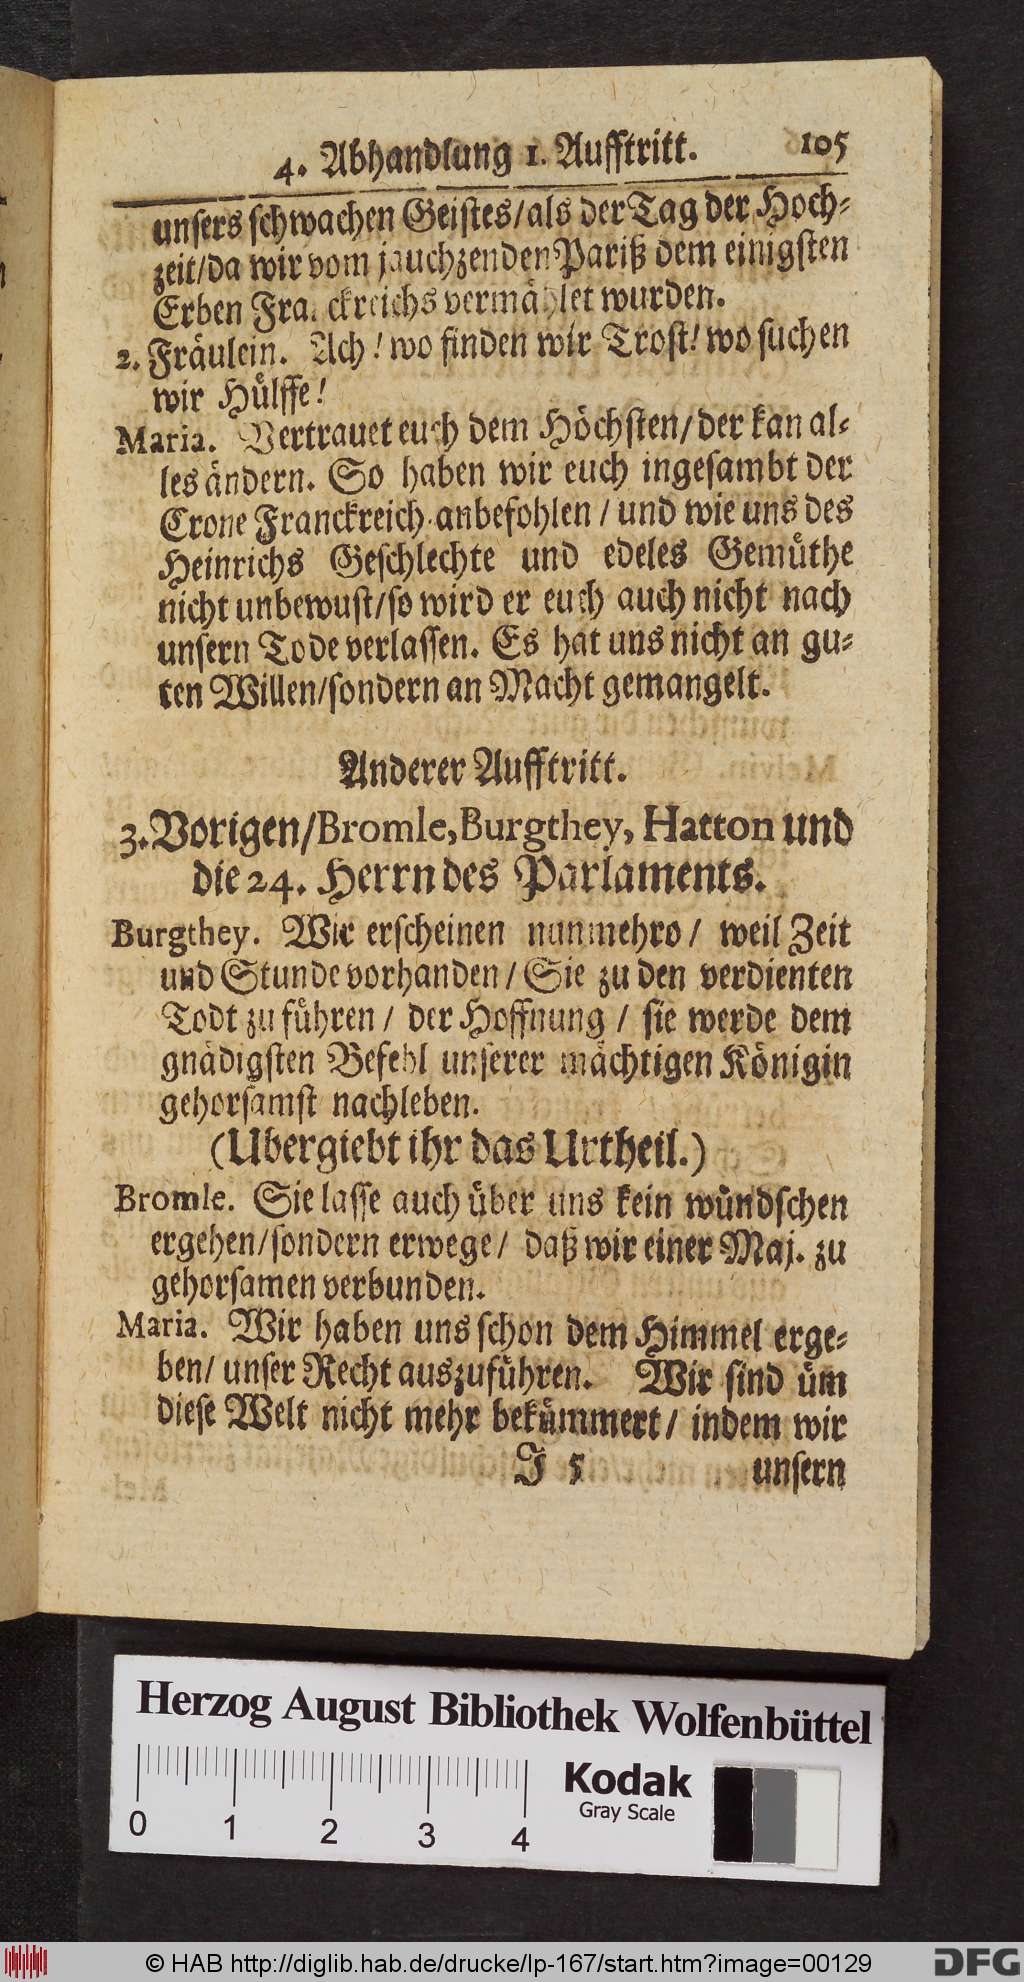 4. Abhandlung 1. Aufftritt. 105
unsers schwachen Geistes/als der Tag der Hoch-
zeit/da wir vom jauchzenden Pariß dem einigsten
Erben Franckreichs vermählet wurden.
2. Fräulein. Ach! wo finden wir Trost! wo suchen
wir Hülffe!
Maria. Vertrauet euch dem Höchsten/der kan al-
les ändern. So haben wir euch ingesambt der
Crone Franckreich anbefohlen/und wie uns des
Heinrichs Geschlechte und edeles Gemüthe
nicht unbewust/so wird er euch auch nicht nach
unsern Tode verlassen. Es hat uns nicht an gu-
ten Willen/sondern an Macht gemangelt.
Anderer Aufftritt.
3. Vorigen/Bromle, Burgthey, Hatton und
die 24. Herrn des Parlaments.
Burgthey. Wir erscheinen nunmehro/ weil Zeit
und Stunde vorhanden/Sie zu den verdienten
Todt zu führen/ der Hoffnung/ sie werde dem
gnädigsten Befehl unserer mächtigen Königin
gehorsamst nachleben.
(Ubergiebt ihr das Urtheil.)
Bromle. Sie lasse auch über uns kein wündschen
ergehen/sondern erwege/ daß wir einer Maj. zu
gehorsamen verbunden.
Maria. Wir haben uns schon dem Himmel erge-
ben/ unser Recht auszuführen. Wir sind üm
diese Welt nicht mehr bekümmert/ indem wir
J 5 unsern
Herzog August Bibliothek Wolfenbüttel
0 1 2 3 4
Kodak
Gray Scale
© HAB http://diglib.hab.de/drucke/lp-167/start.htm?image=00129
DFG